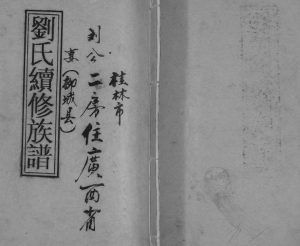 劉氏續修族譜
桂林市
刘公二房住廣西省
(柳城县)